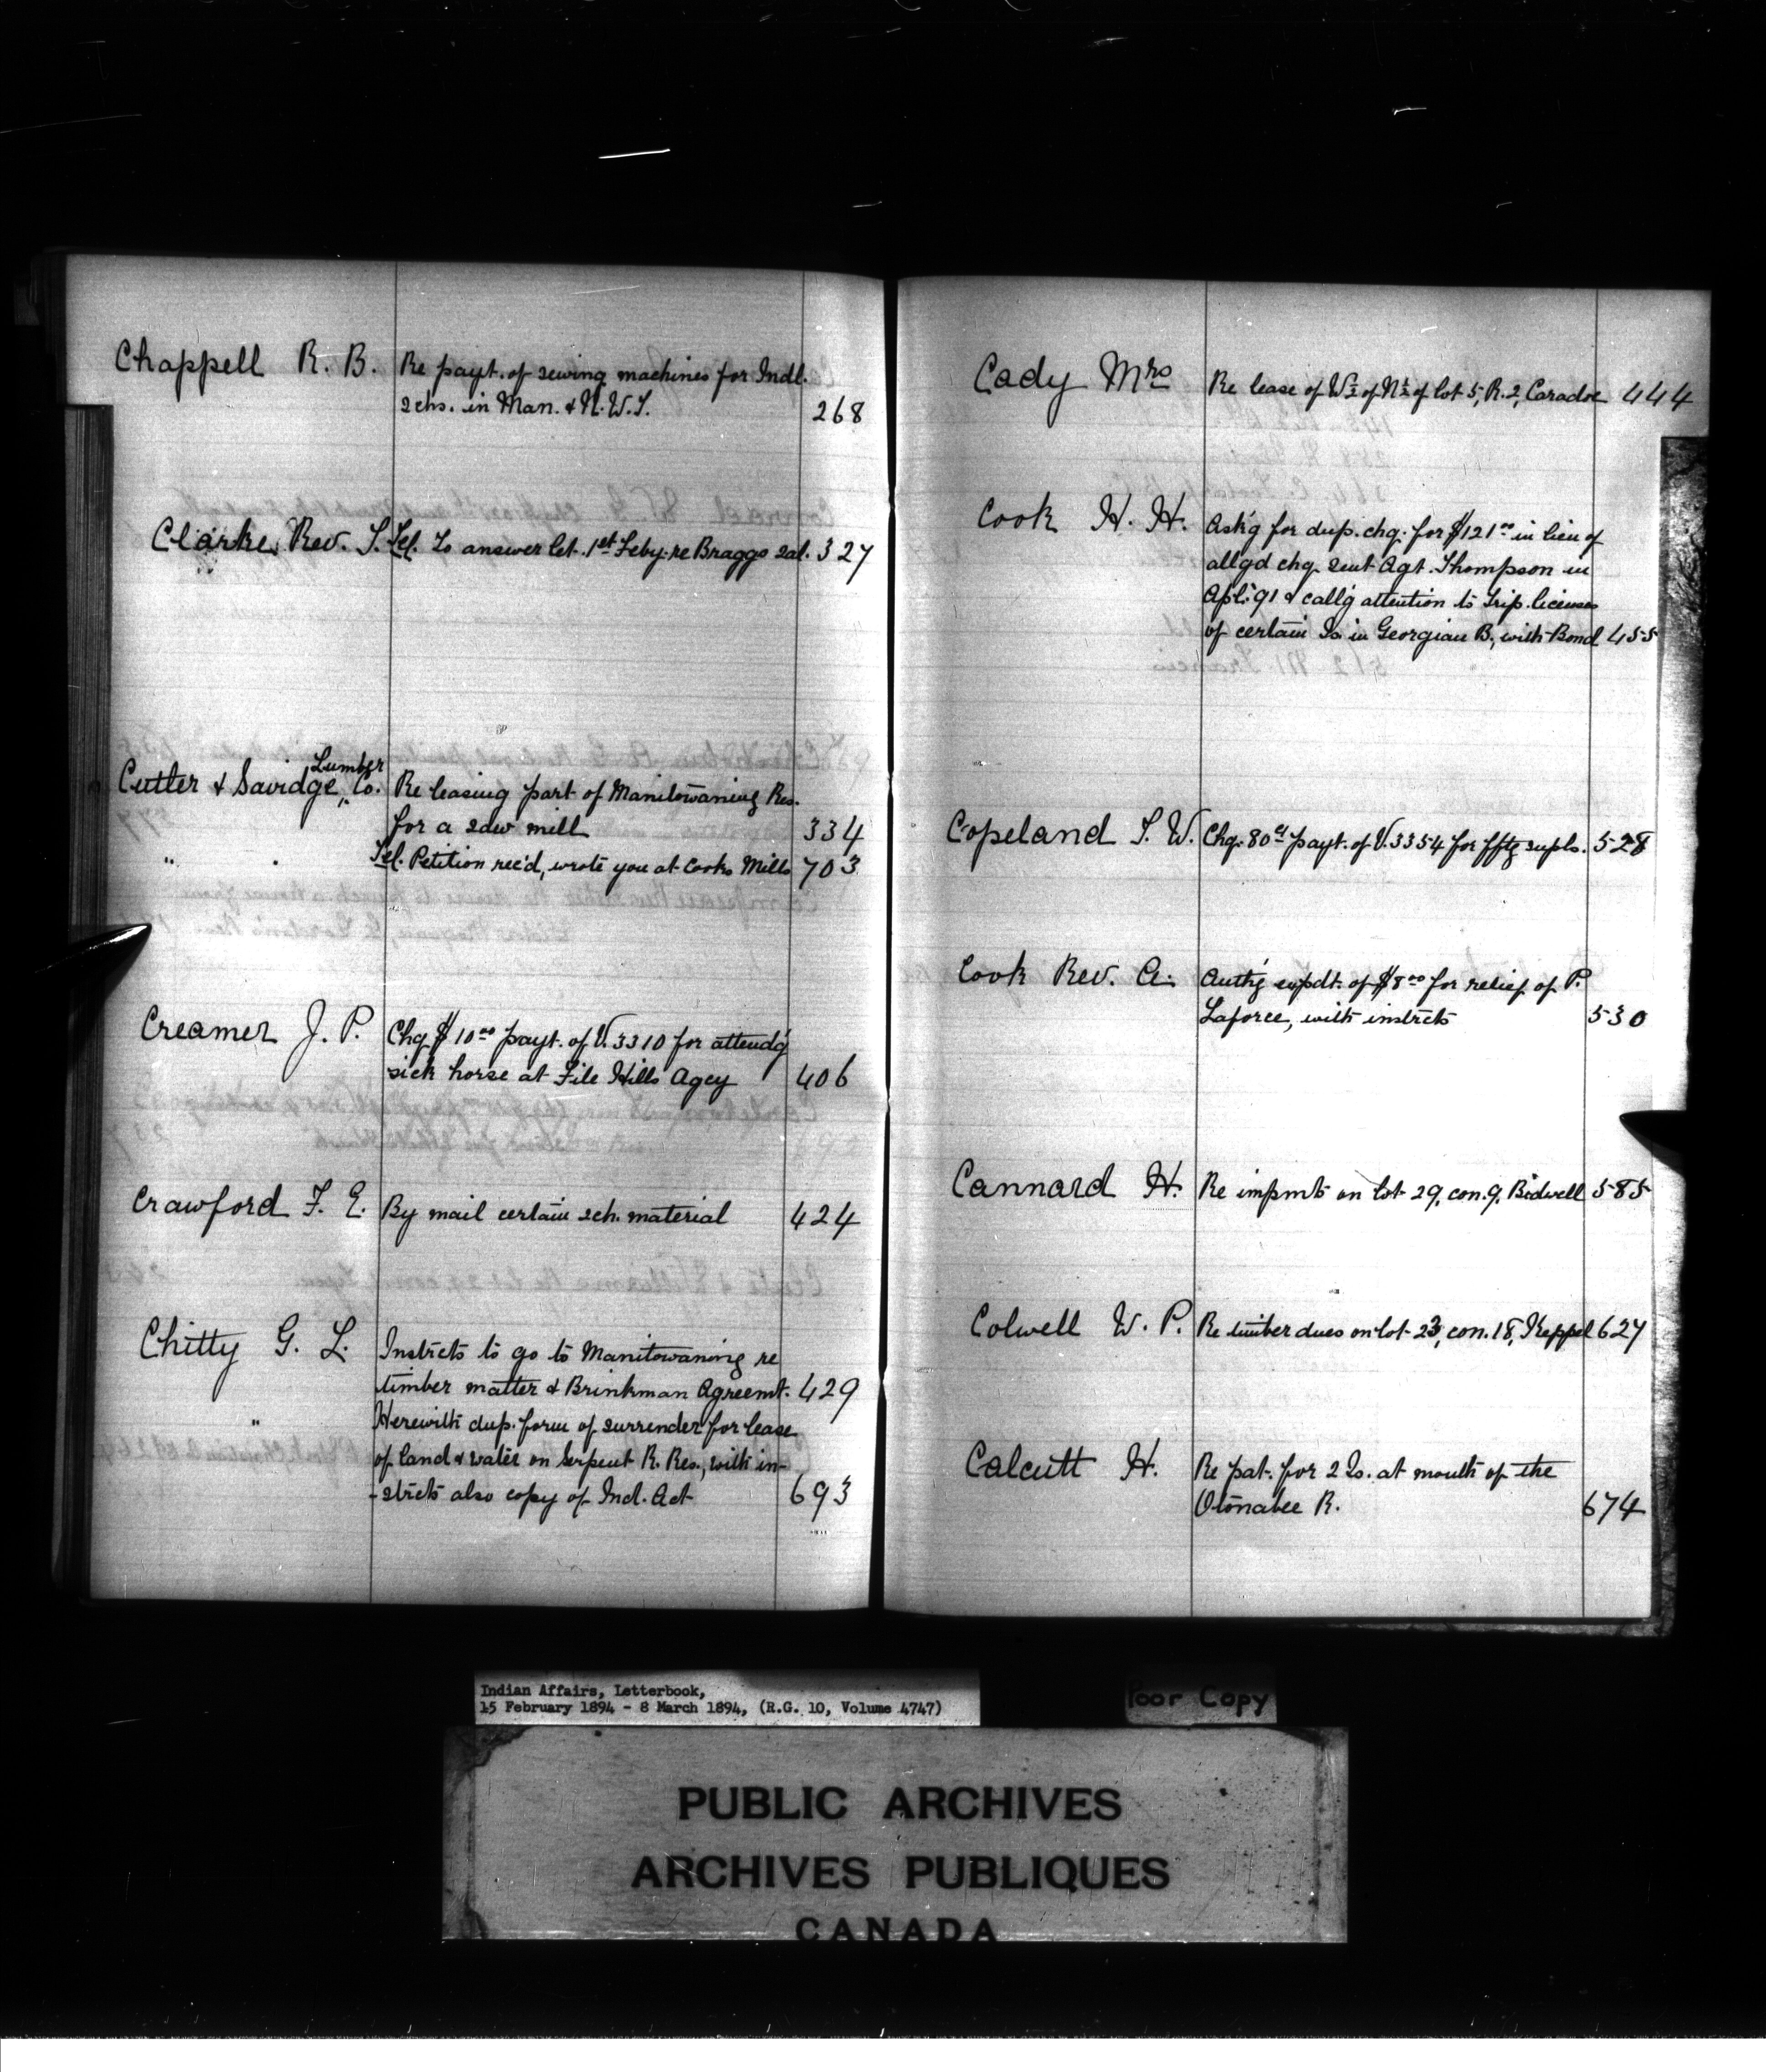 Chappell R. B. Re payt. of sewing machines for Indl.
schs. in Man. & N.W.T. 268
Clarke, Rev. S. Tel. To answer let. 1st Feby. re Braggs sal. 327
Cutler & Savidge Lumber Co. Re leasing part of Manitowaning Res.
for a saw mill 334
" . Tel. Petition rec'd, wrote you at Cooks Mills 703
Creamer J. P. Chq $10.00 payt. of V. 3310 for attend'g
sick horse at File Hills Agcy 406
Crawford F. E. By mail certain sch. material 424
Chitty G. L. Instrcts to go to Manitowaning re
timber matter & Brinkman Agreemt. 429
" Herewith dup. form of surrender for lease
of land & water on Serpent R. Res., with in-
-strcts also copy of Ind. Act 693
Cady Mrs Re lease of W½ of N½ of lot 5, R. 2, Caradoc 444
Cook H. H. Ask'g for dup. chq. for $121.00 in lieu of
allgd chq sent Agt. Thompson in
Apl. 91 & call'g attention to Trip. licenses
of certain Is. in Georgian B., with Bond 455
Copeland T. W. Chq. 80 cts payt. of V. 3354 for fftg supls. 528
Cook Rev. A. Auth'g expdt. of $8.00 for relief of P.
Laforce, with instrcts 530
Cannard H. Re impmts on lot 29, con. 9, Bidwell 585
Colwell W. P. Re timber dues on lot 23, con. 18, Keppel 627
Calcutt H. Re pat. for 2 Is. at mouth of the
Otonabee R. 674
Indian Affairs, Letterbook,
15 February 1894 - 8 March 1894, (R.G. 10, Volume 4747)
Poor Copy
PUBLIC ARCHIVES
ARCHIVES PUBLIQUES
CANADA